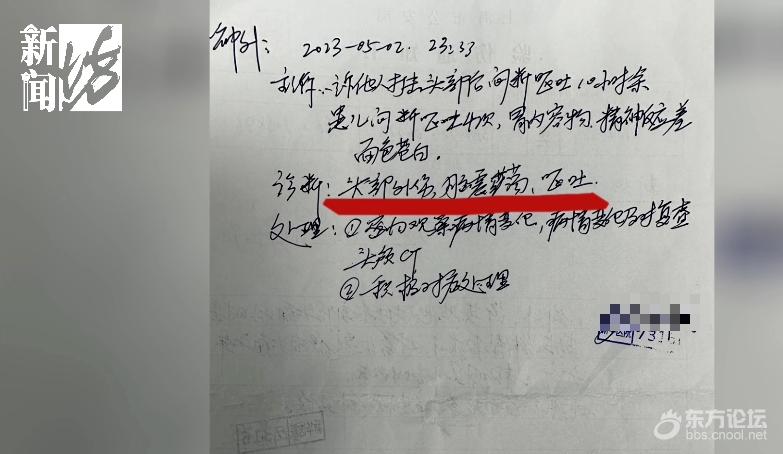 新闻坊
神外: 2023-05-02. 23:33
主诉: 诉他人打击头部后间断呕吐10小时余
患儿间断呕吐4次, 胃内容物, 精神反应差
面色苍白.
诊断: 头部外伤, 脑震荡, 呕吐.
处理: ①密切观察病情变化, 病情变化及时复查
头颅CT
②积极对症处理
东方论坛
bbs.cnool.net